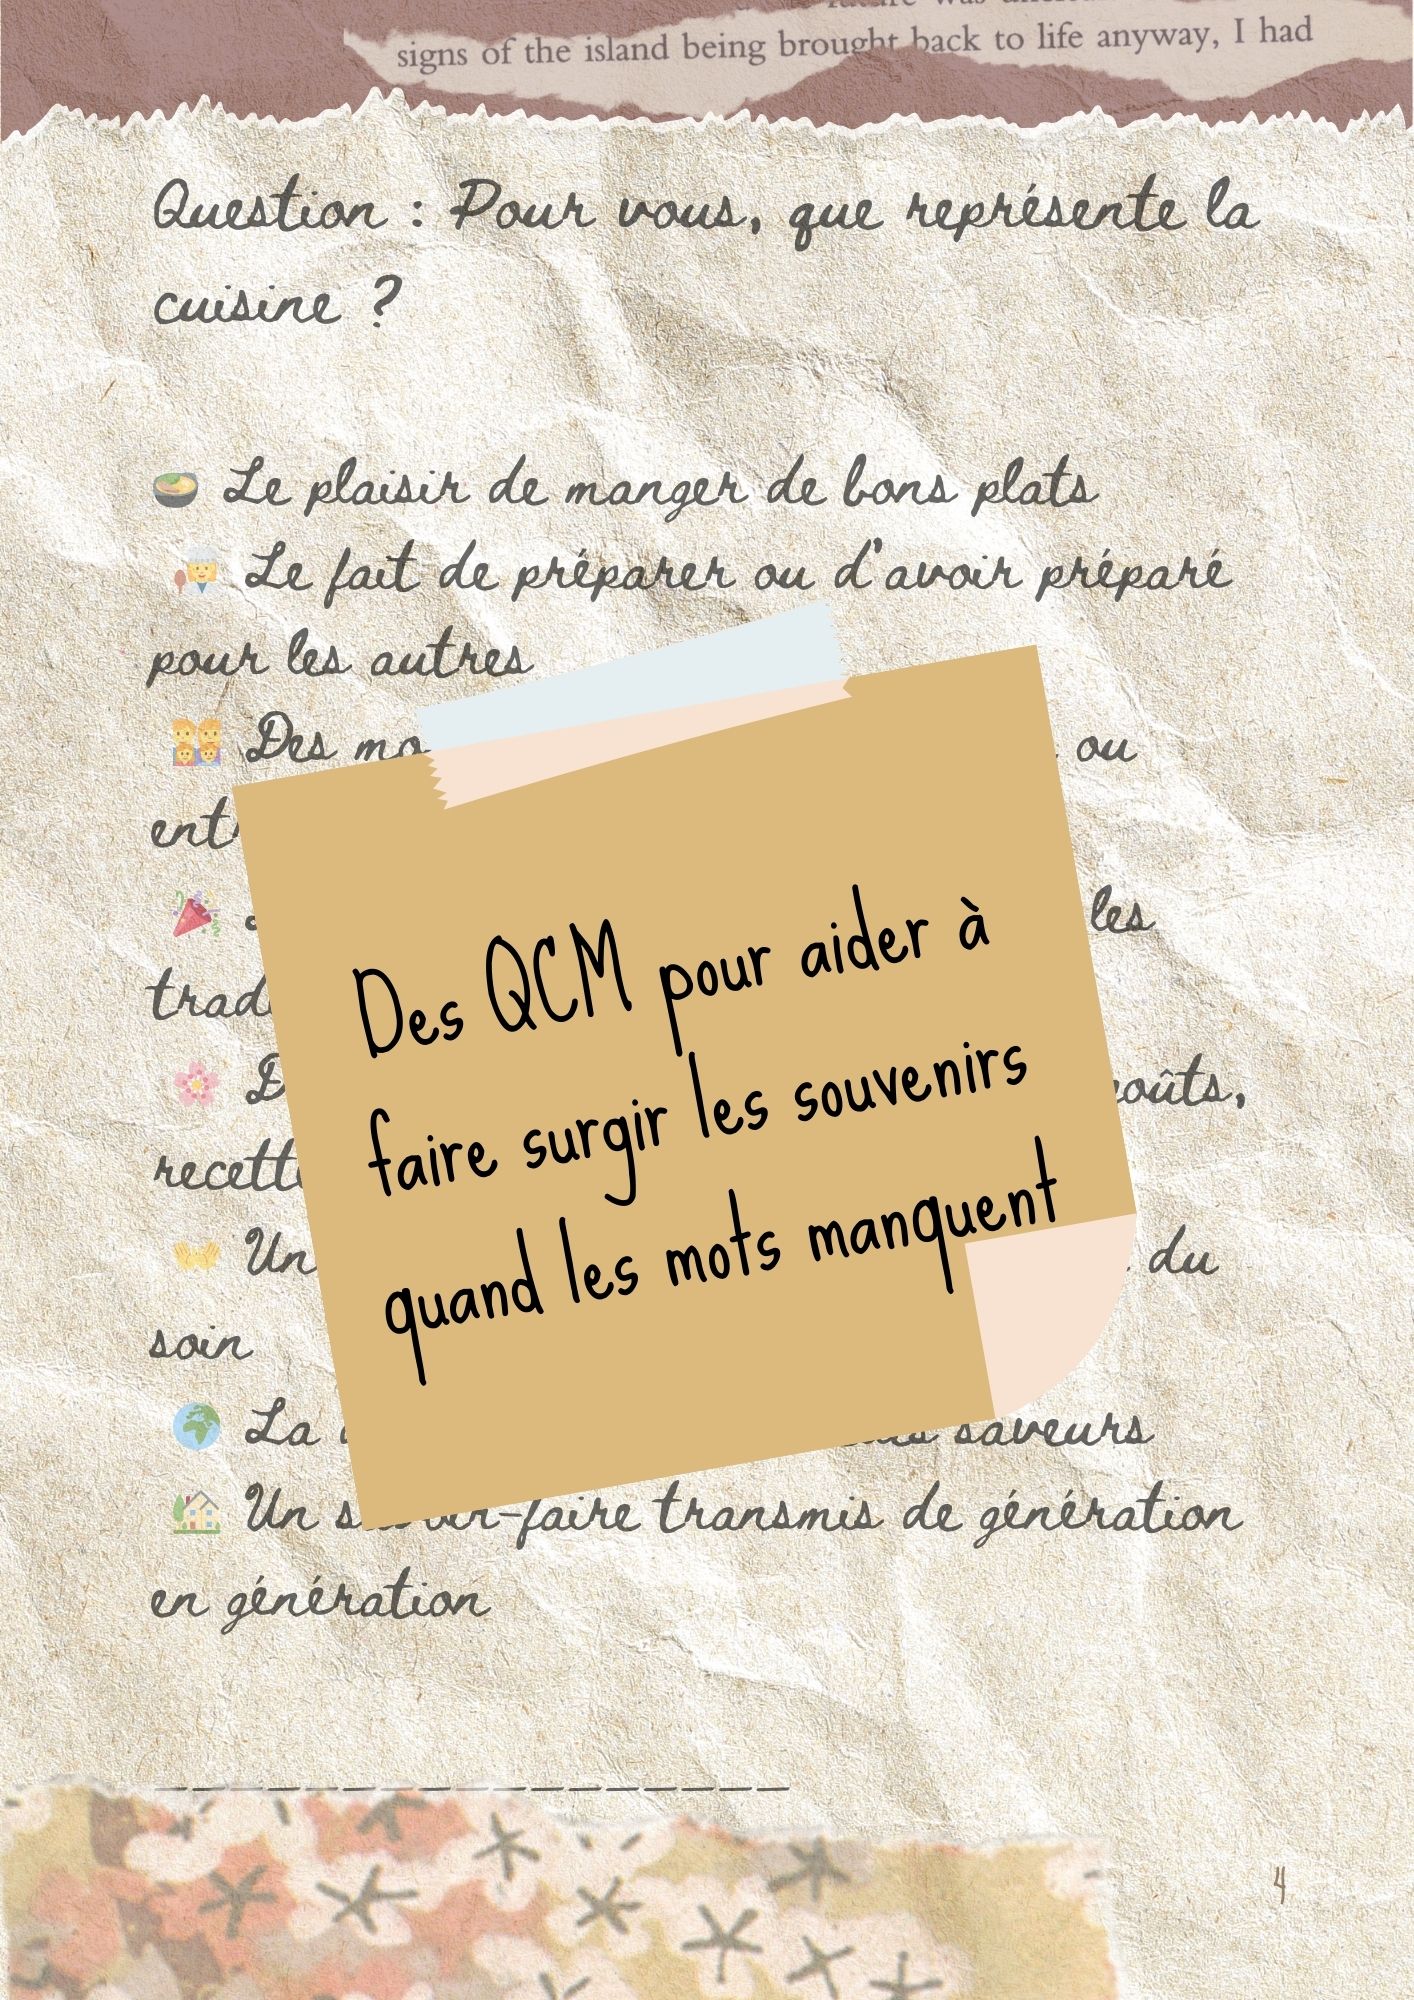 signs of the island being brought back to life anyway, I had
Question : Pour vous, que représente la
cuisine ?
Le plaisir de manger de bons plats
Le fait de préparer ou d'avoir préparé
pour les autres
Des
ou
les
recette
Un
du
soin
La
saveurs
Un
transmis de génération
en génération
Des QCM pour aider à
faire surgir les souvenirs
quand les mots manquent
4